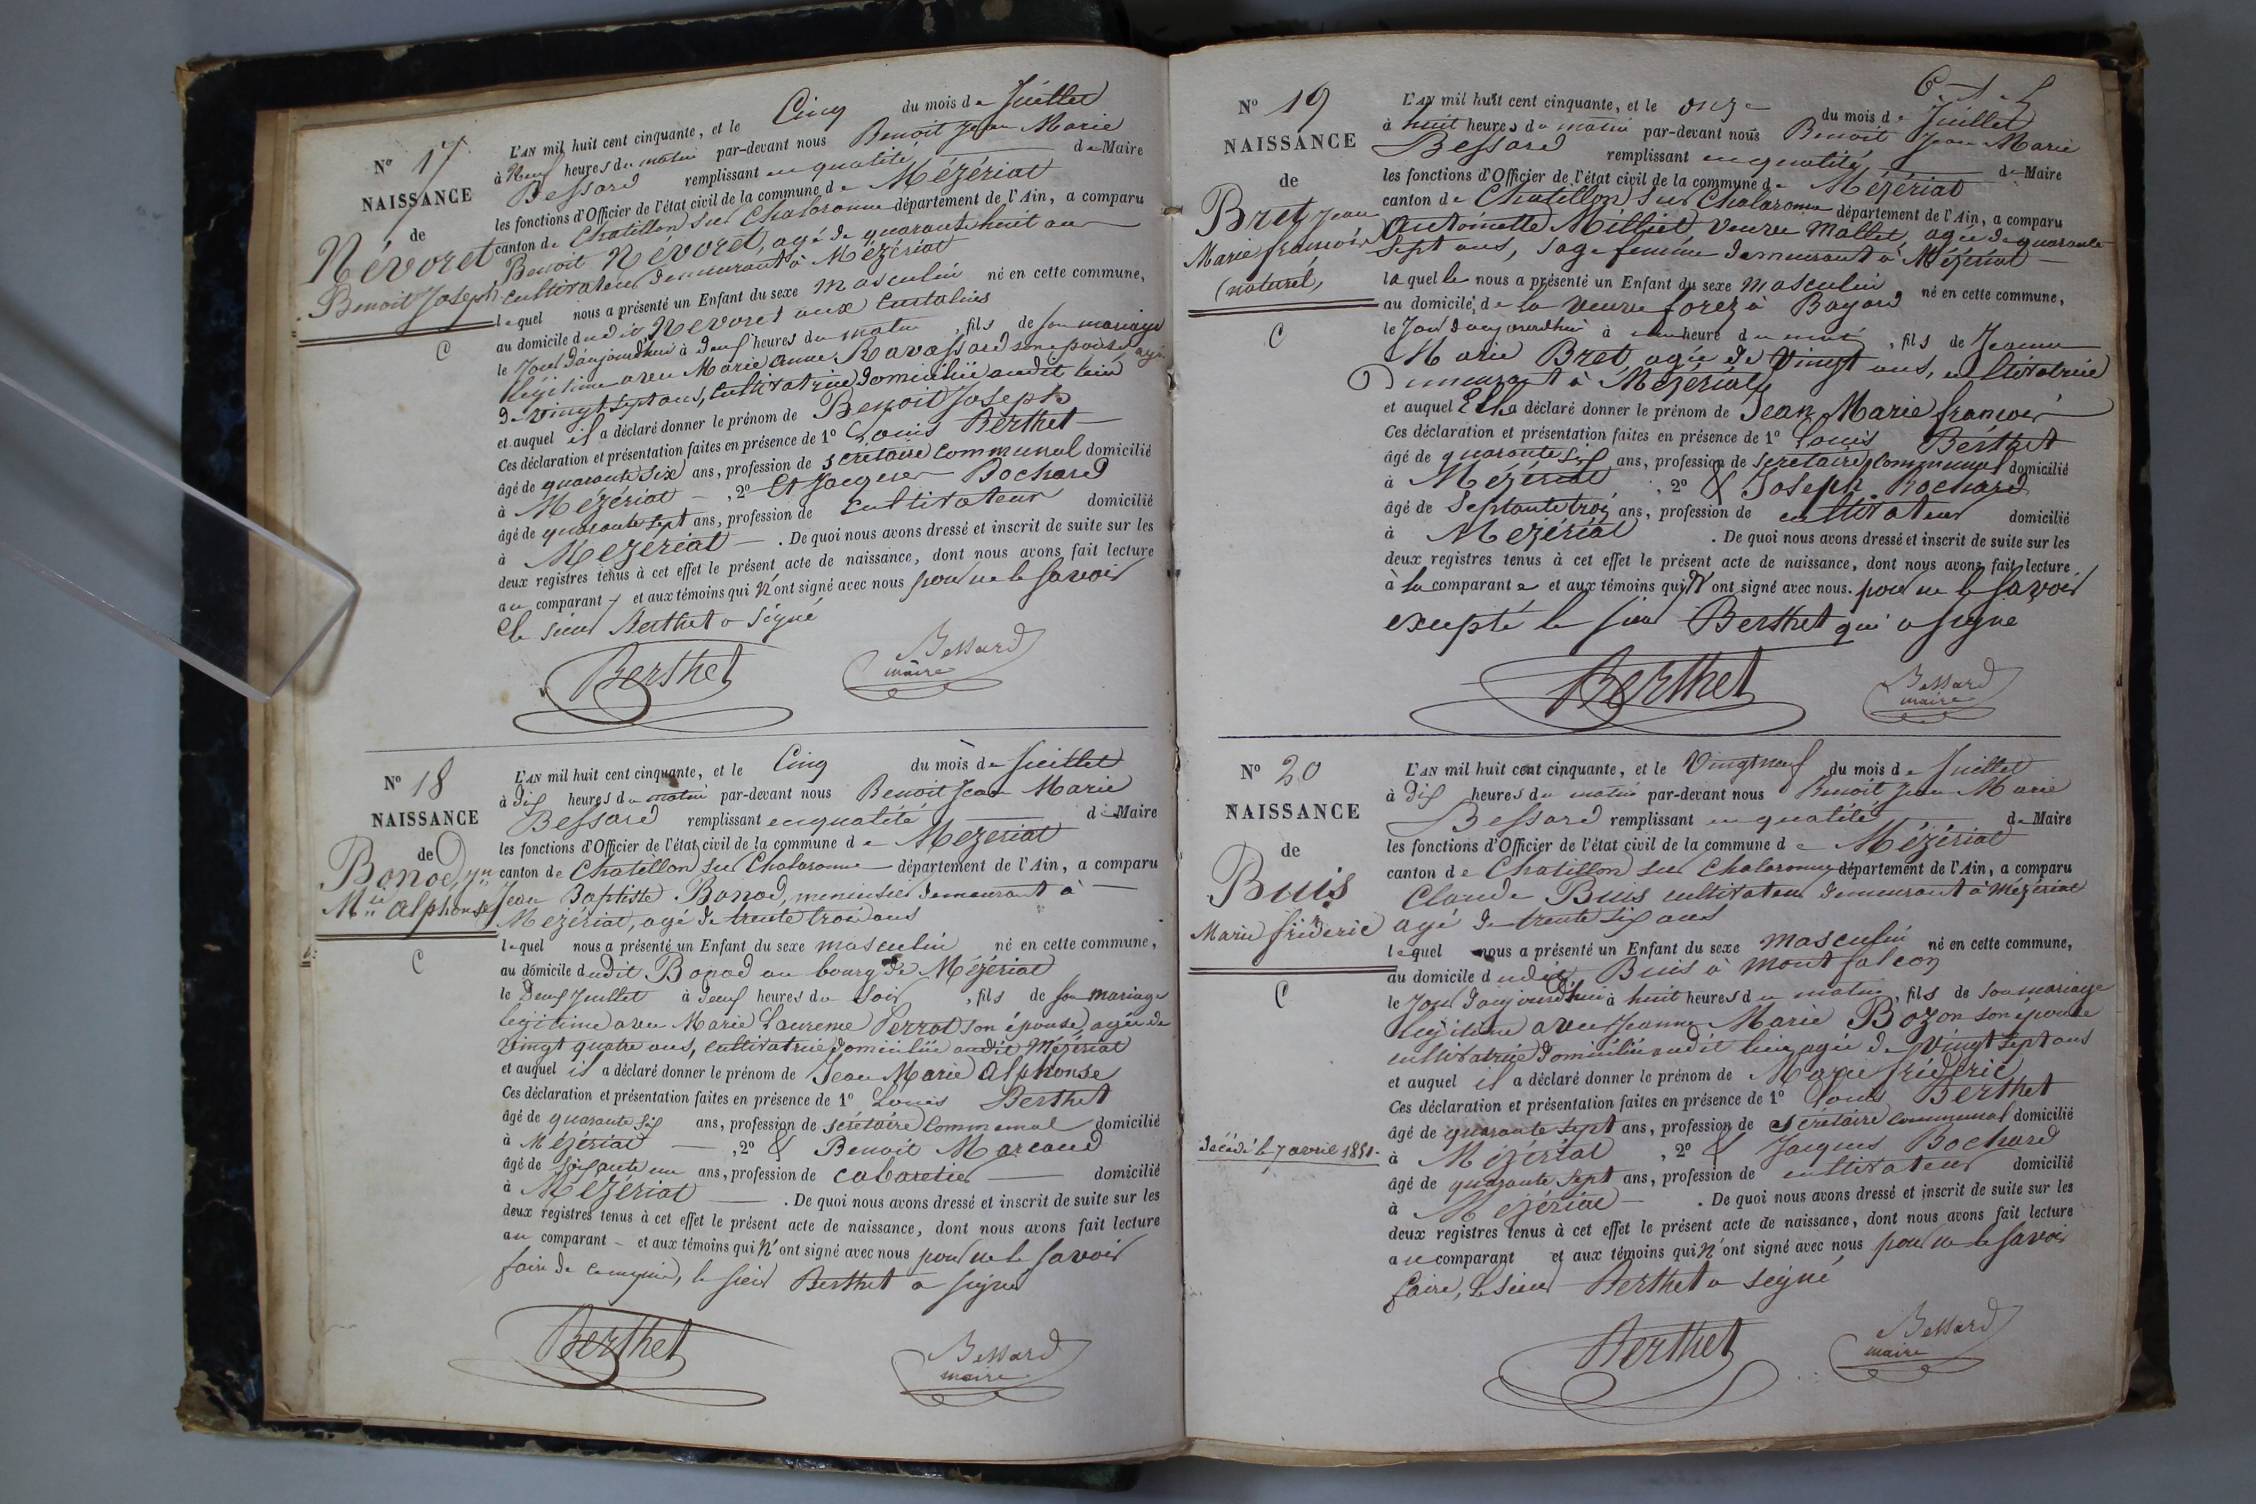 N° 17
NAISSANCE
de
Névoret
Benoit Joseph
C
L'AN mil huit cent cinquante, et le Cinq du mois de Juillet
à Neuf heures du matin par-devant nous Benoit Jean Marie
Bessard remplissant en qualité de Maire
les fonctions d'Officier de l'état civil de la commune de Mézériat
canton de Chatillon sur Chalaronne département de l'Ain, a comparu
Benoit Névoret, agé de quarante huit ans
cultivateur demeurant à Mézériat
lequel nous a présenté un Enfant du sexe masculin né en cette commune,
au domicile dudit Névoret aux
le Jour d'aujourdhui à deux heures du matin, fils de son mariage
légitime avec Marie Anne Ravassard son épouse, agée
de vingt sept ans, cultivatrice domiciliée audit lieu
et auquel il a déclaré donner le prénom de Benoit Joseph
Ces déclaration et présentation faites en présence de 1° Louis Berthet
âgé de quarante six ans, profession de secrétaire communal domicilié
à Mézériat, 2° Et Jacques Bochard
âgé de quarante sept ans, profession de cultivateur domicilié
à Mézériat. De quoi nous avons dressé et inscrit de suite sur les
deux registres tenus à cet effet le présent acte de naissance, dont nous avons fait lecture
au comparant et aux témoins qui n'ont signé avec nous pour ne le savoir
le sieur Berthet a signé
Berthet
Bessard
maire
N° 18
NAISSANCE
de
Bonod, Jn
Mie Alphonse
C
L'AN mil huit cent cinquante, et le Cinq du mois de Juillet
à dix heures du matin par-devant nous Benoit Jean Marie
Bessard remplissant en qualité de Maire
les fonctions d'Officier de l'état civil de la commune de Mézériat
canton de Chatillon sur Chalaronne département de l'Ain, a comparu
Jean Baptiste Bonod, menuisier demeurant à
Mézériat, agé de trente trois ans
lequel nous a présenté un Enfant du sexe masculin né en cette commune,
au domicile dudit Bonod au bourg de Mézériat
le Deux Juillet à deux heures du soir, fils de son mariage
légitime avec Marie Laurence Perrot son épouse, agée de
vingt quatre ans, cultivatrice domiciliée audit Mézériat
et auquel il a déclaré donner le prénom de Jean Marie Alphonse
Ces déclaration et présentation faites en présence de 1° Louis Berthet
âgé de quarante six ans, profession de secrétaire communal domicilié
à Mézériat, 2° & Benoit Marcaud
âgé de soixante un ans, profession de cabaretier domicilié
à Mézériat. De quoi nous avons dressé et inscrit de suite sur les
deux registres tenus à cet effet le présent acte de naissance, dont nous avons fait lecture
au comparant et aux témoins qui n'ont signé avec nous pour ne le savoir
faire de , le sieur Berthet a signé
Berthet
Bessard
maire
N° 19
NAISSANCE
de
Bret Jean
Marie françois
(naturel)
C
L'AN mil huit cent cinquante, et le onze du mois de Juillet
à huit heures du matin par-devant nous Benoit Jean Marie
Bessard remplissant en qualité de Maire
les fonctions d'Officier de l'état civil de la commune de Mézériat
canton de Chatillon sur Chalaronne département de l'Ain, a comparu
Antoinette Milliet veuve Mallet, agée de quarante
sept ans, sage femme demeurant à Mézériat
laquelle nous a présenté un Enfant du sexe masculin né en cette commune,
au domicile, de la veuve forez à Bayard
le Jour d'aujourdhui à une heure du matin, fils de Jeanne
Marie Bret, agée de vingt ans, cultivatrice
Demeurant à Mézériat
et auquel Elle a déclaré donner le prénom de Jean Marie françois
Ces déclaration et présentation faites en présence de 1° Louis Berthet
âgé de quarante six ans, profession de secrétaire communal domicilié
à Mézériat, 2° & Joseph Bochard
âgé de septante trois ans, profession de cultivateur domicilié
à Mézériat. De quoi nous avons dressé et inscrit de suite sur les
deux registres tenus à cet effet le présent acte de naissance, dont nous avons fait lecture
à la comparante et aux témoins qui N'ont signé avec nous. pour ne le savoir
excepté le sieur Berthet qui a signé
Berthet
Bessard
maire
N° 20
NAISSANCE
de
Buis
Marie frédéric
C
Décédé le 7 avril 1851.
L'AN mil huit cent cinquante, et le Vingt neuf du mois de Juillet
à dix heures du matin par-devant nous Benoit Jean Marie
Bessard remplissant en qualité de Maire
les fonctions d'Officier de l'état civil de la commune de Mézériat
canton de Chatillon sur Chalaronne département de l'Ain, a comparu
Claude Buis cultivateur demeurant à Mézériat
agé de trente six ans
lequel nous a présenté un Enfant du sexe masculin né en cette commune,
au domicile dudit Buis à Montfalcon
le Jour d'aujourd'hui à huit heures du matin, fils de son mariage
légitime avec Jeanne Marie Bozon son épouse
cultivatrice domiciliée audit lieu, agée de vingt sept ans
et auquel il a déclaré donner le prénom de Marie frédéric
Ces déclaration et présentation faites en présence de 1° Louis Berthet
âgé de quarante sept ans, profession de secrétaire communal domicilié
à Mézériat, 2° & Jacques Bochard
âgé de quarante sept ans, profession de cultivateur domicilié
à Mézériat. De quoi nous avons dressé et inscrit de suite sur les
deux registres tenus à cet effet le présent acte de naissance, dont nous avons fait lecture
au comparant et aux témoins qui n'ont signé avec nous pour ne le savoir
faire, le sieur Berthet a signé
Berthet
Bessard
maire